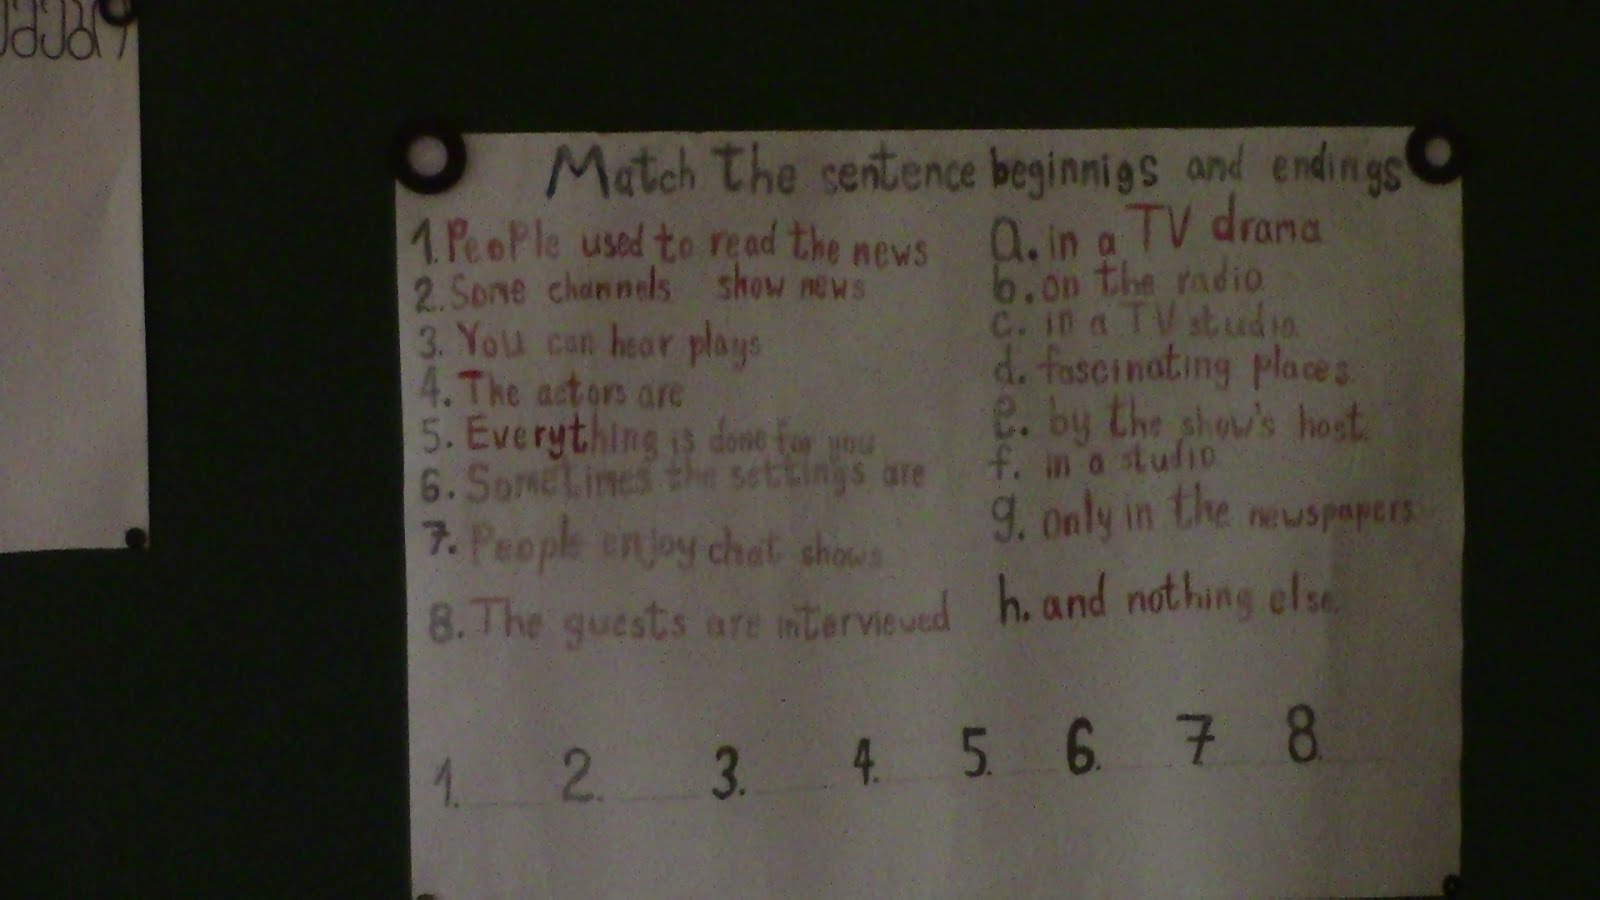 Match the sentence beginnigs and endings
1. People used to read the news
2. Some channels show news
3. You can hear plays
4. The actors are
5. Everything is done for you
6. Sometimes the settings are
7. People enjoy chat shows
8. The guests are interviewed
a. in a TV drama
b. on the radio
c. in a TV studio.
d. fascinating places.
e. by the show's host.
f. in a studio.
g. only in the newspapers.
h. and nothing else.
1. 2. 3. 4. 5. 6. 7 8.